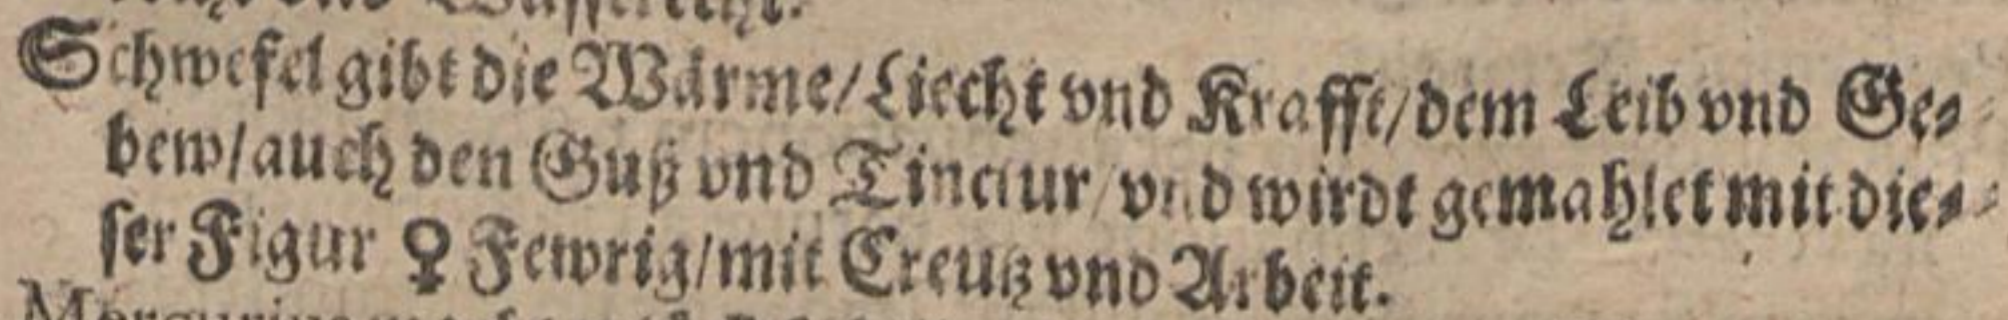 Schwefel gibt die Wärme/Liecht vnd Krafft/dem Leib vnd Ge⸗
bew/auch den Guß vnd Tinctur/vnd wirdt gemahlet mit die⸗
ser Figur ♀ Fewrig/mit Creutz vnd Arbeit.